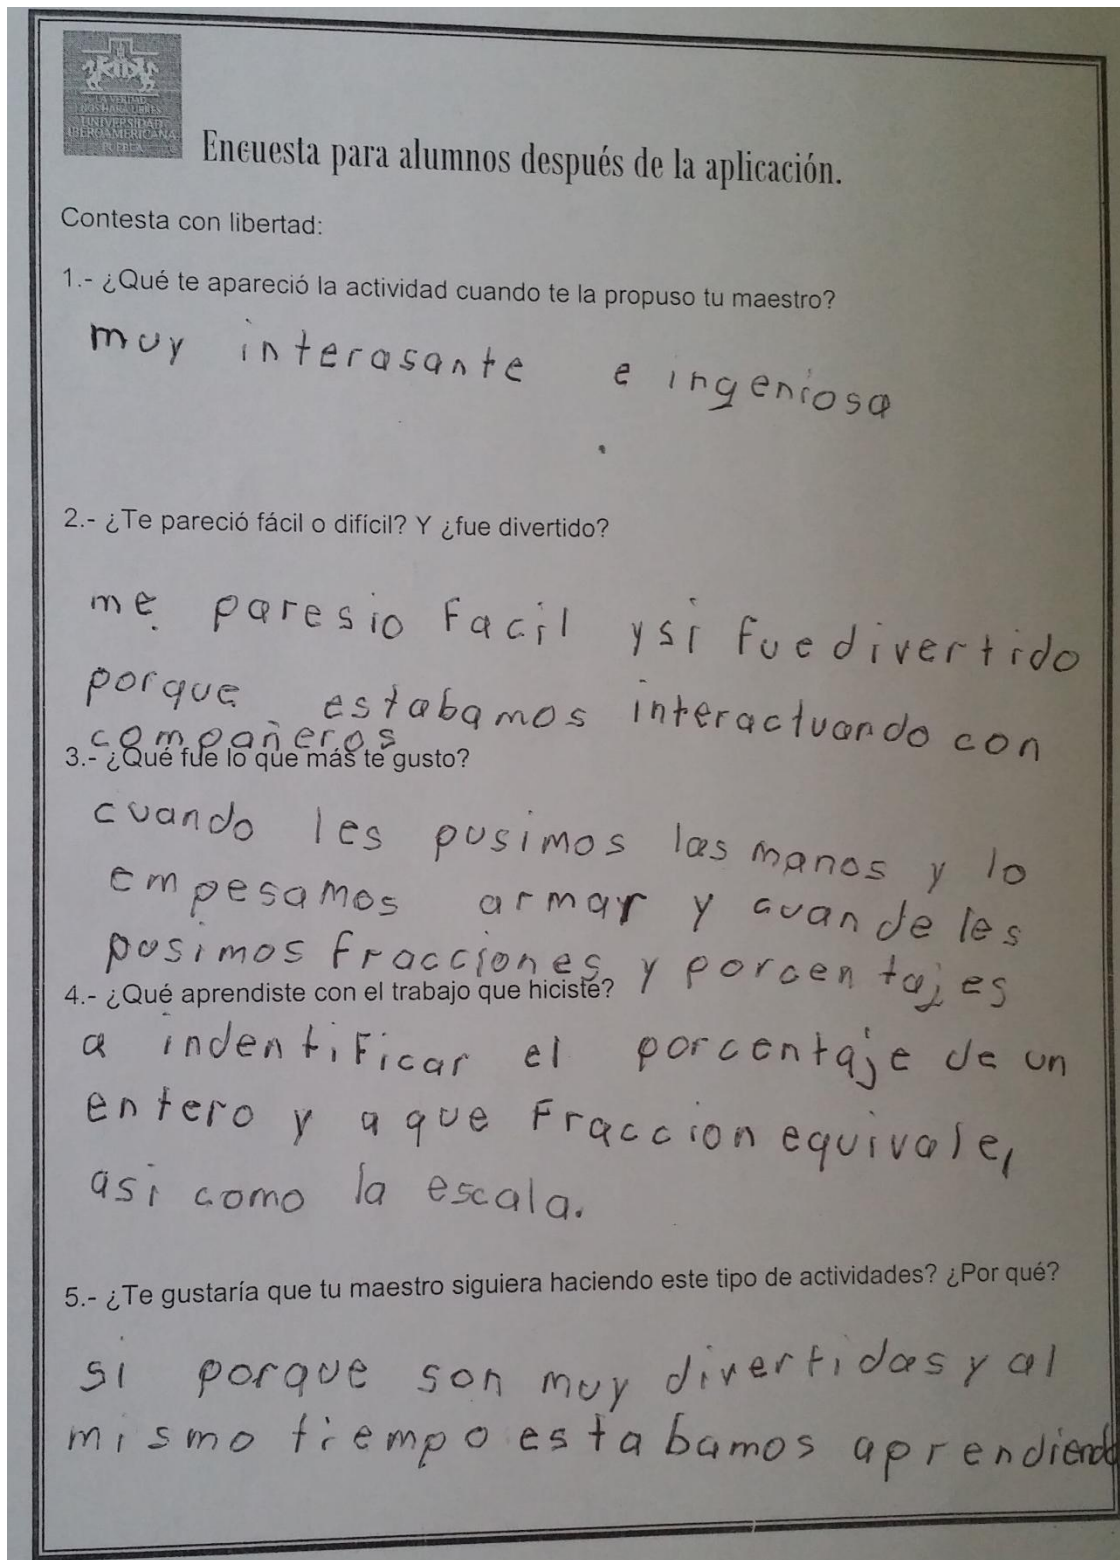 LA VERDAD
NOS HARÁ LIBRES
UNIVERSIDAD
IBEROAMERICANA
PUEBLA
Encuesta para alumnos después de la aplicación.
Contesta con libertad:
1.- ¿Qué te apareció la actividad cuando te la propuso tu maestro?
muy interasante e ingeniosa
2.- ¿Te pareció fácil o difícil? Y ¿fue divertido?
me paresio facil y si fue divertido
porque estabamos interactuando con
compañeros
3.- ¿Qué fue lo que más te gusto?
cuando les pusimos las manos y lo
empesamos armar y cuande les
pusimos fracciones y porcentajes
4.- ¿Qué aprendiste con el trabajo que hiciste?
a indentificar el porcentaje de un
entero y a que fraccion equivale,
asi como la escala.
5.- ¿Te gustaría que tu maestro siguiera haciendo este tipo de actividades? ¿Por qué?
si porque son muy divertidas y al
mismo tiempo estabamos aprendiendo